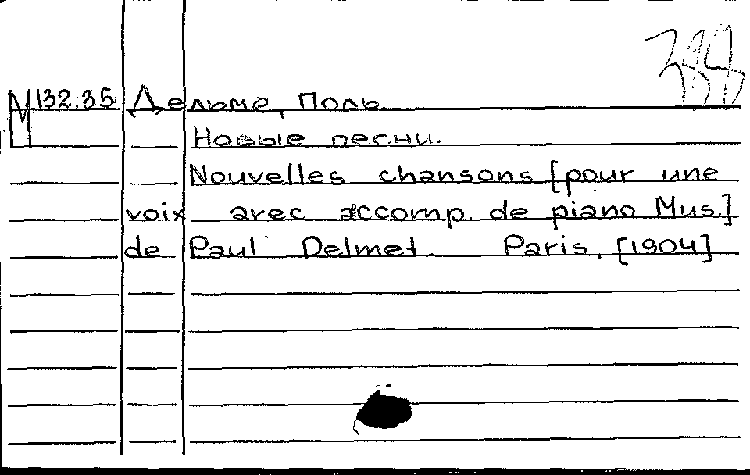 М132.35 Дельме, Поль
Новые песни.
Nouvelles chansons [pour une
voix avec accomp. de piano Mus.]
de Paul Delmet. Paris, [1904]